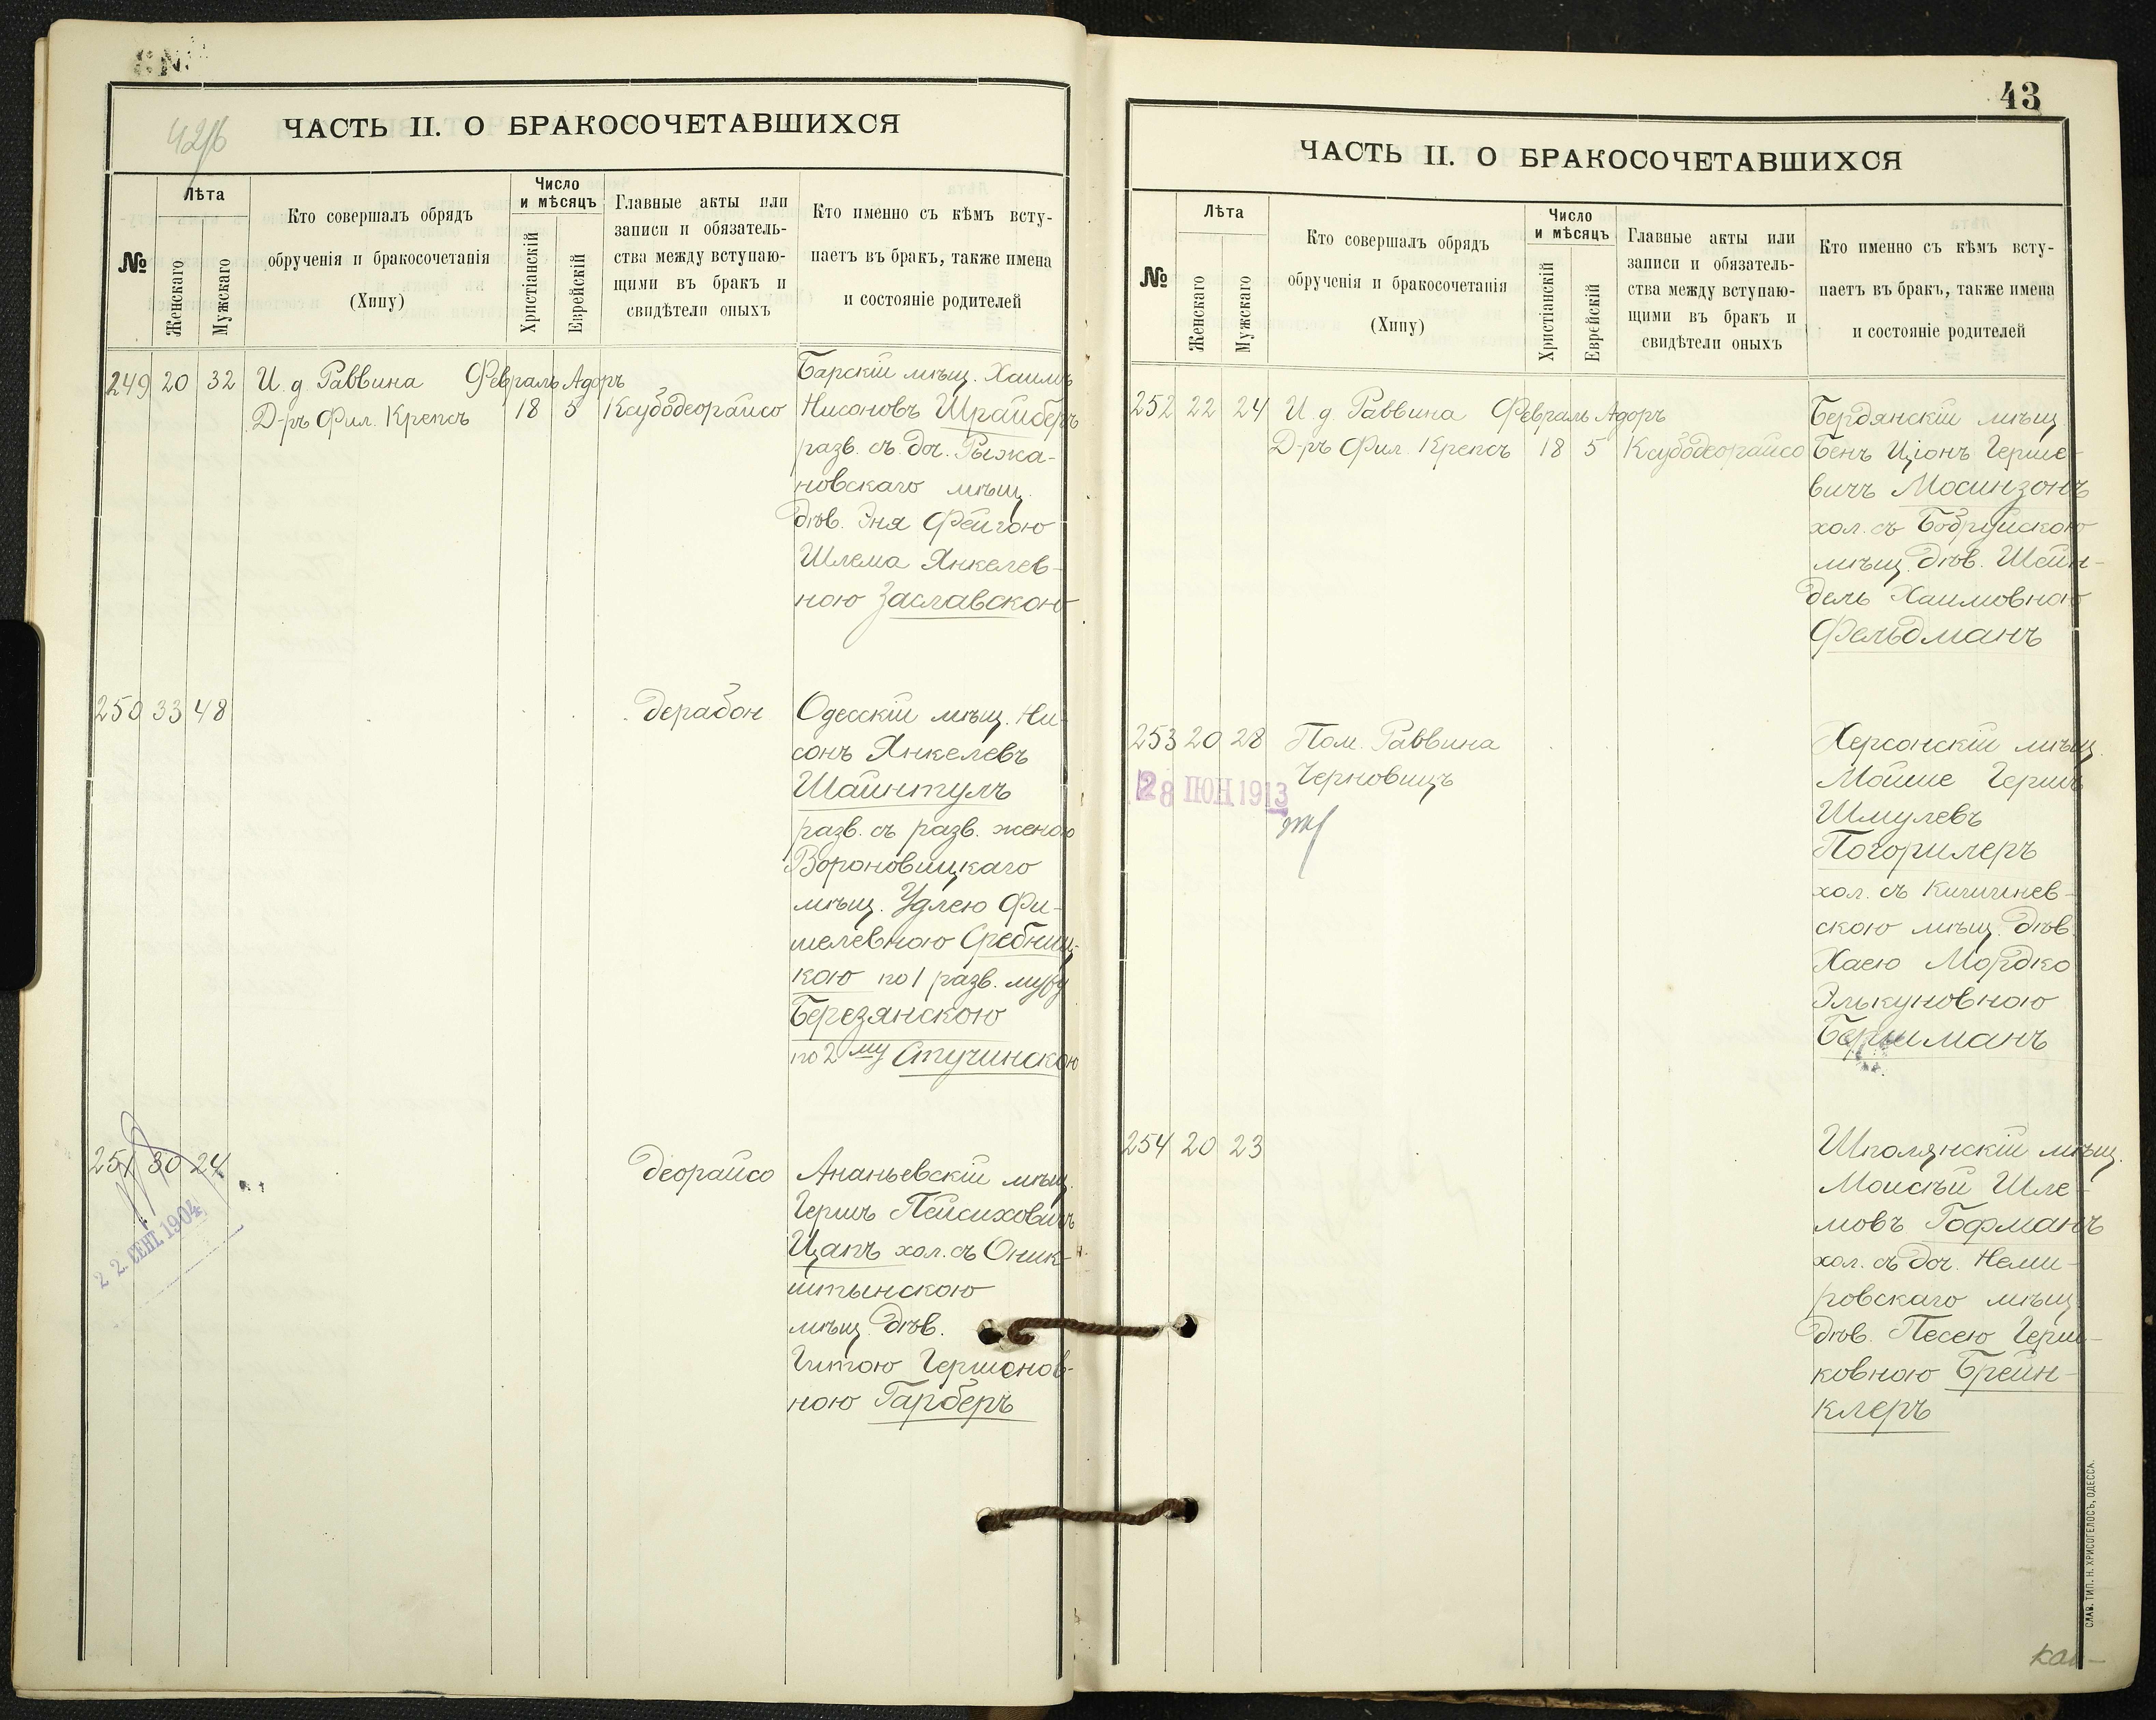 42/б
ЧАСТЬ II. О БРАКОСОЧЕТАВШИХСЯ
№
Лѣта
Женскаго
Мужскаго
Кто совершалъ обрядъ
обрученія и бракосочетанія
(Хипу)
Число
и мѣсяцъ
Христіанскій
Еврейскій
Главные акты или
записи и обязатель-
ства между вступаю-
щими въ бракъ и
свидѣтели оныхъ
Кто именно съ кѣмъ всту-
паетъ въ бракъ, также имена
и состояніе родителей
249 20 32 И. д. Раввина Февраль Адоръ
Д-ръ Фил. Крепсъ 18 5 Ксубодеорайсо
Барскій мѣщ. Хаимъ
Нисоновъ Шрайберъ
разв. съ доч. Рыжа-
новскаго мѣщ.
дѣв. Эня Фейгою
Шлема Янкелев-
ною Заславскою
250 33 48 дерабон
Одесскій мѣщ. Ни-
сонъ Янкелевъ
Шайнтулъ
разв. съ разв. женою
Вороновицкаго
мѣщ. Удлею Фи-
шелевною Сребниц-
кою по 1 разв. мужу
Березянскою
по 2му Стучинскою
251 30 24 деорайсо
22 СЕНТ. 1904
Ананьевскій мѣщ.
Гершъ Пейсиховичъ
Цапъ хол. съ Оник-
штынскою
мѣщ. дѣв.
Гитою Гершонов-
ною Гарберъ
43
ЧАСТЬ II. О БРАКОСОЧЕТАВШИХСЯ
№
Лѣта
Женскаго
Мужскаго
Кто совершалъ обрядъ
обрученія и бракосочетанія
(Хипу)
Число
и мѣсяцъ
Христіанскій
Еврейскій
Главные акты или
записи и обязатель-
ства между вступаю-
щими въ бракъ и
свидѣтели оныхъ
Кто именно съ кѣмъ всту-
паетъ въ бракъ, также имена
и состояніе родителей
252 22 24 И. д. Раввина Февраль Адоръ
Д-ръ Фил. Крепсъ 18 5 Ксубодеорайсо
Бердянскій мѣщ.
Бенъ Ціонъ Герше-
вичъ Мосинзонъ
хол. съ Бобруйскою
мѣщ. дѣв. Шейн-
дель Хаимовною
Фельдманъ
253 20 28 Пом. Раввина
Черновицъ
28 ІЮН 1913
Херсонскій мѣщ.
Мойше Гершъ
Шмулевъ
Погорилеръ
хол. съ Кишинев-
скою мѣщ. дѣв.
Хаею Мордко
Элькуновною
Бершманъ
254 20 23
Шполянскій мѣщ.
Моисѣй Шле-
мовъ Гофманъ
хол. съ доч. Неми-
ровскаго мѣщ.
дѣв. Песею Герш-
ковною Брейн-
клеръ
СЛАВ. ТИП. Н. ХРИСОГЕЛОСЪ, ОДЕССА.